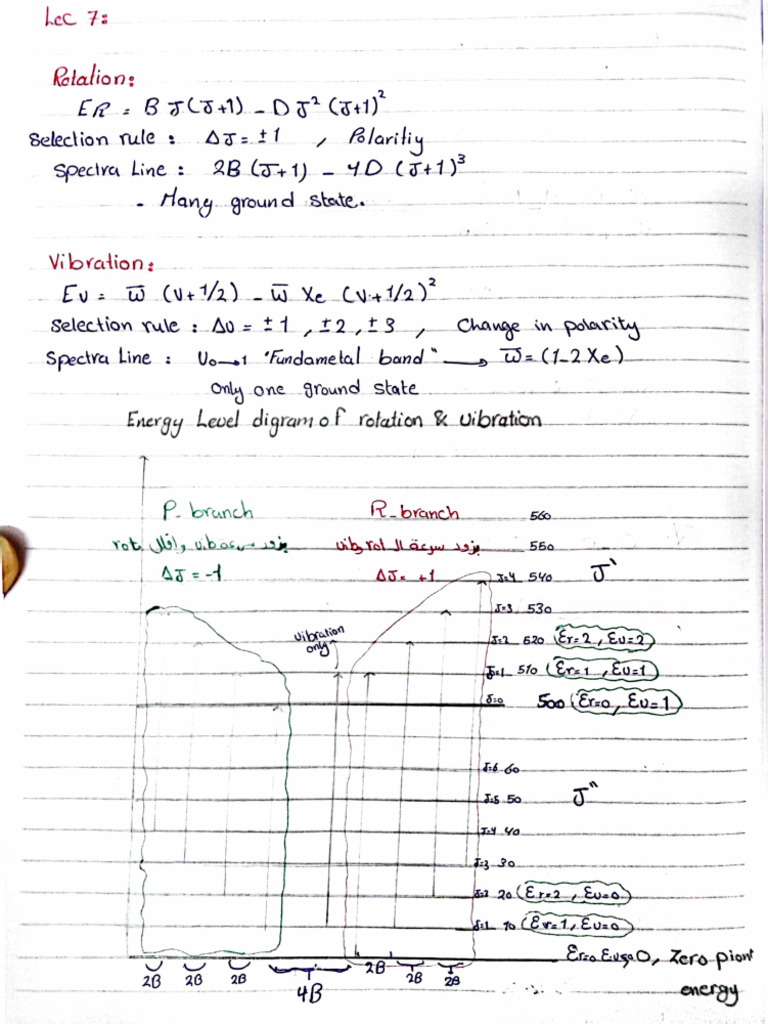 Lec 7:
Rotation:
ER = B J(J+1) - D J² (J+1)²
Selection rule : ΔJ = ±1 , Polaritiy
Spectra Line : 2B (J+1) - 4D (J+1)³
- Many ground state.
Vibration:
Ev = ω̅ (v+1/2) - ω̅ Xe (v+1/2)²
Selection rule : Δv = ±1 , ±2 , ±3 , Change in polarity
Spectra Line : v₀→1 "Fundametal band" → ω̅ = (1-2Xe)
only one ground state
Energy Level digram of rotation & vibration
P- branch R- branch 560
rot واقلل vib يزود سرعه يزود سرعة ال vib, rot 550
ΔJ = -1 ΔJ = +1 J=4 540 J'
J=3 530
vibration only J=2 520 (Er=2, Ev=2)
J=1 510 (Er=1, Ev=1)
J=0 500 (Er=0, Ev=1)
J=6 60
J=5 50 J"
J=4 40
J=3 30
J=2 20 (Er=2, Ev=0)
J=1 10 (Er=1, Ev=0)
Er=0 Ev=0 0, Zero piont
2B 2B 2B 4B 2B 2B 2B energy